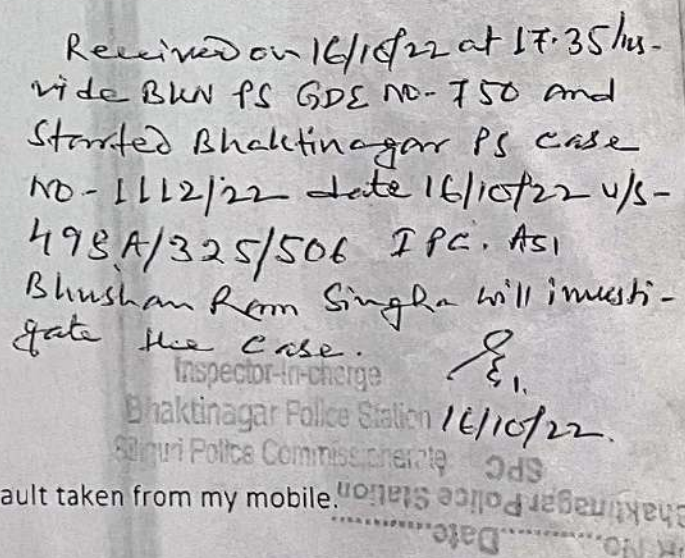 Received on 16/10/22 at 17.35 hrs-
vide BKN PS GDE NO-750 and
Started Bhaktinagar PS case
NO-1112/22 date 16/10/22 u/s-
498A/325/506 IPC. ASI
Bhushan Ram Singha will investi-
gate the case.
Inspector-in-charge
Bhaktinagar Police Station 16/10/22.
Siliguri Police Commissionerate
ault taken from my mobile.
Bhaktinagar Police Station
Date